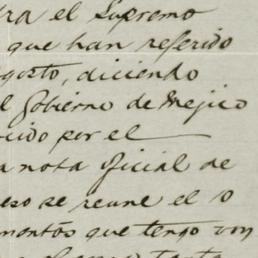 tra el Supremo
que han referido
gosto, diciendo
l Gobierno de Mejico
cido por el
a nota oficial de
eso se reune el 10
mentos que tengo con